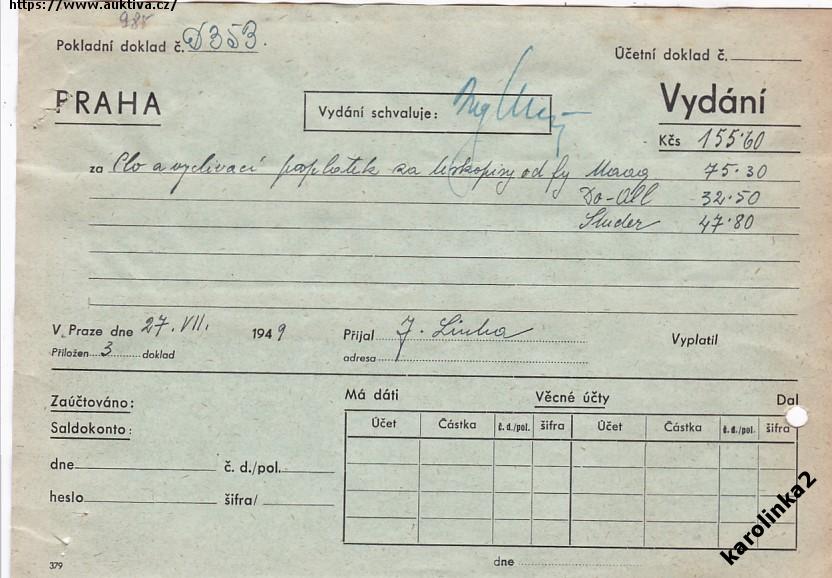 https://www.auktiva.cz/
985
Pokladní doklad č. D353.
Účetní doklad č.
PRAHA
Vydání schvaluje:
Vydání
Kčs 155·60
za Clo a vyclívací poplatek za tiskopisy od fy Maag 75·30
Do-All 32·50
Studer 47·80
V Praze dne 27. VII. 1949
Přijal J. Linha
Vyplatil
Přiložen 3 doklad
adresa
Zaúčtováno:
Saldokonto:
dne č. d./pol.
heslo šifra/
Má dáti Věcné účty Dal
Účet Částka č. d./pol. šifra Účet Částka č. d./pol. šifra
379
dne
karolinka2